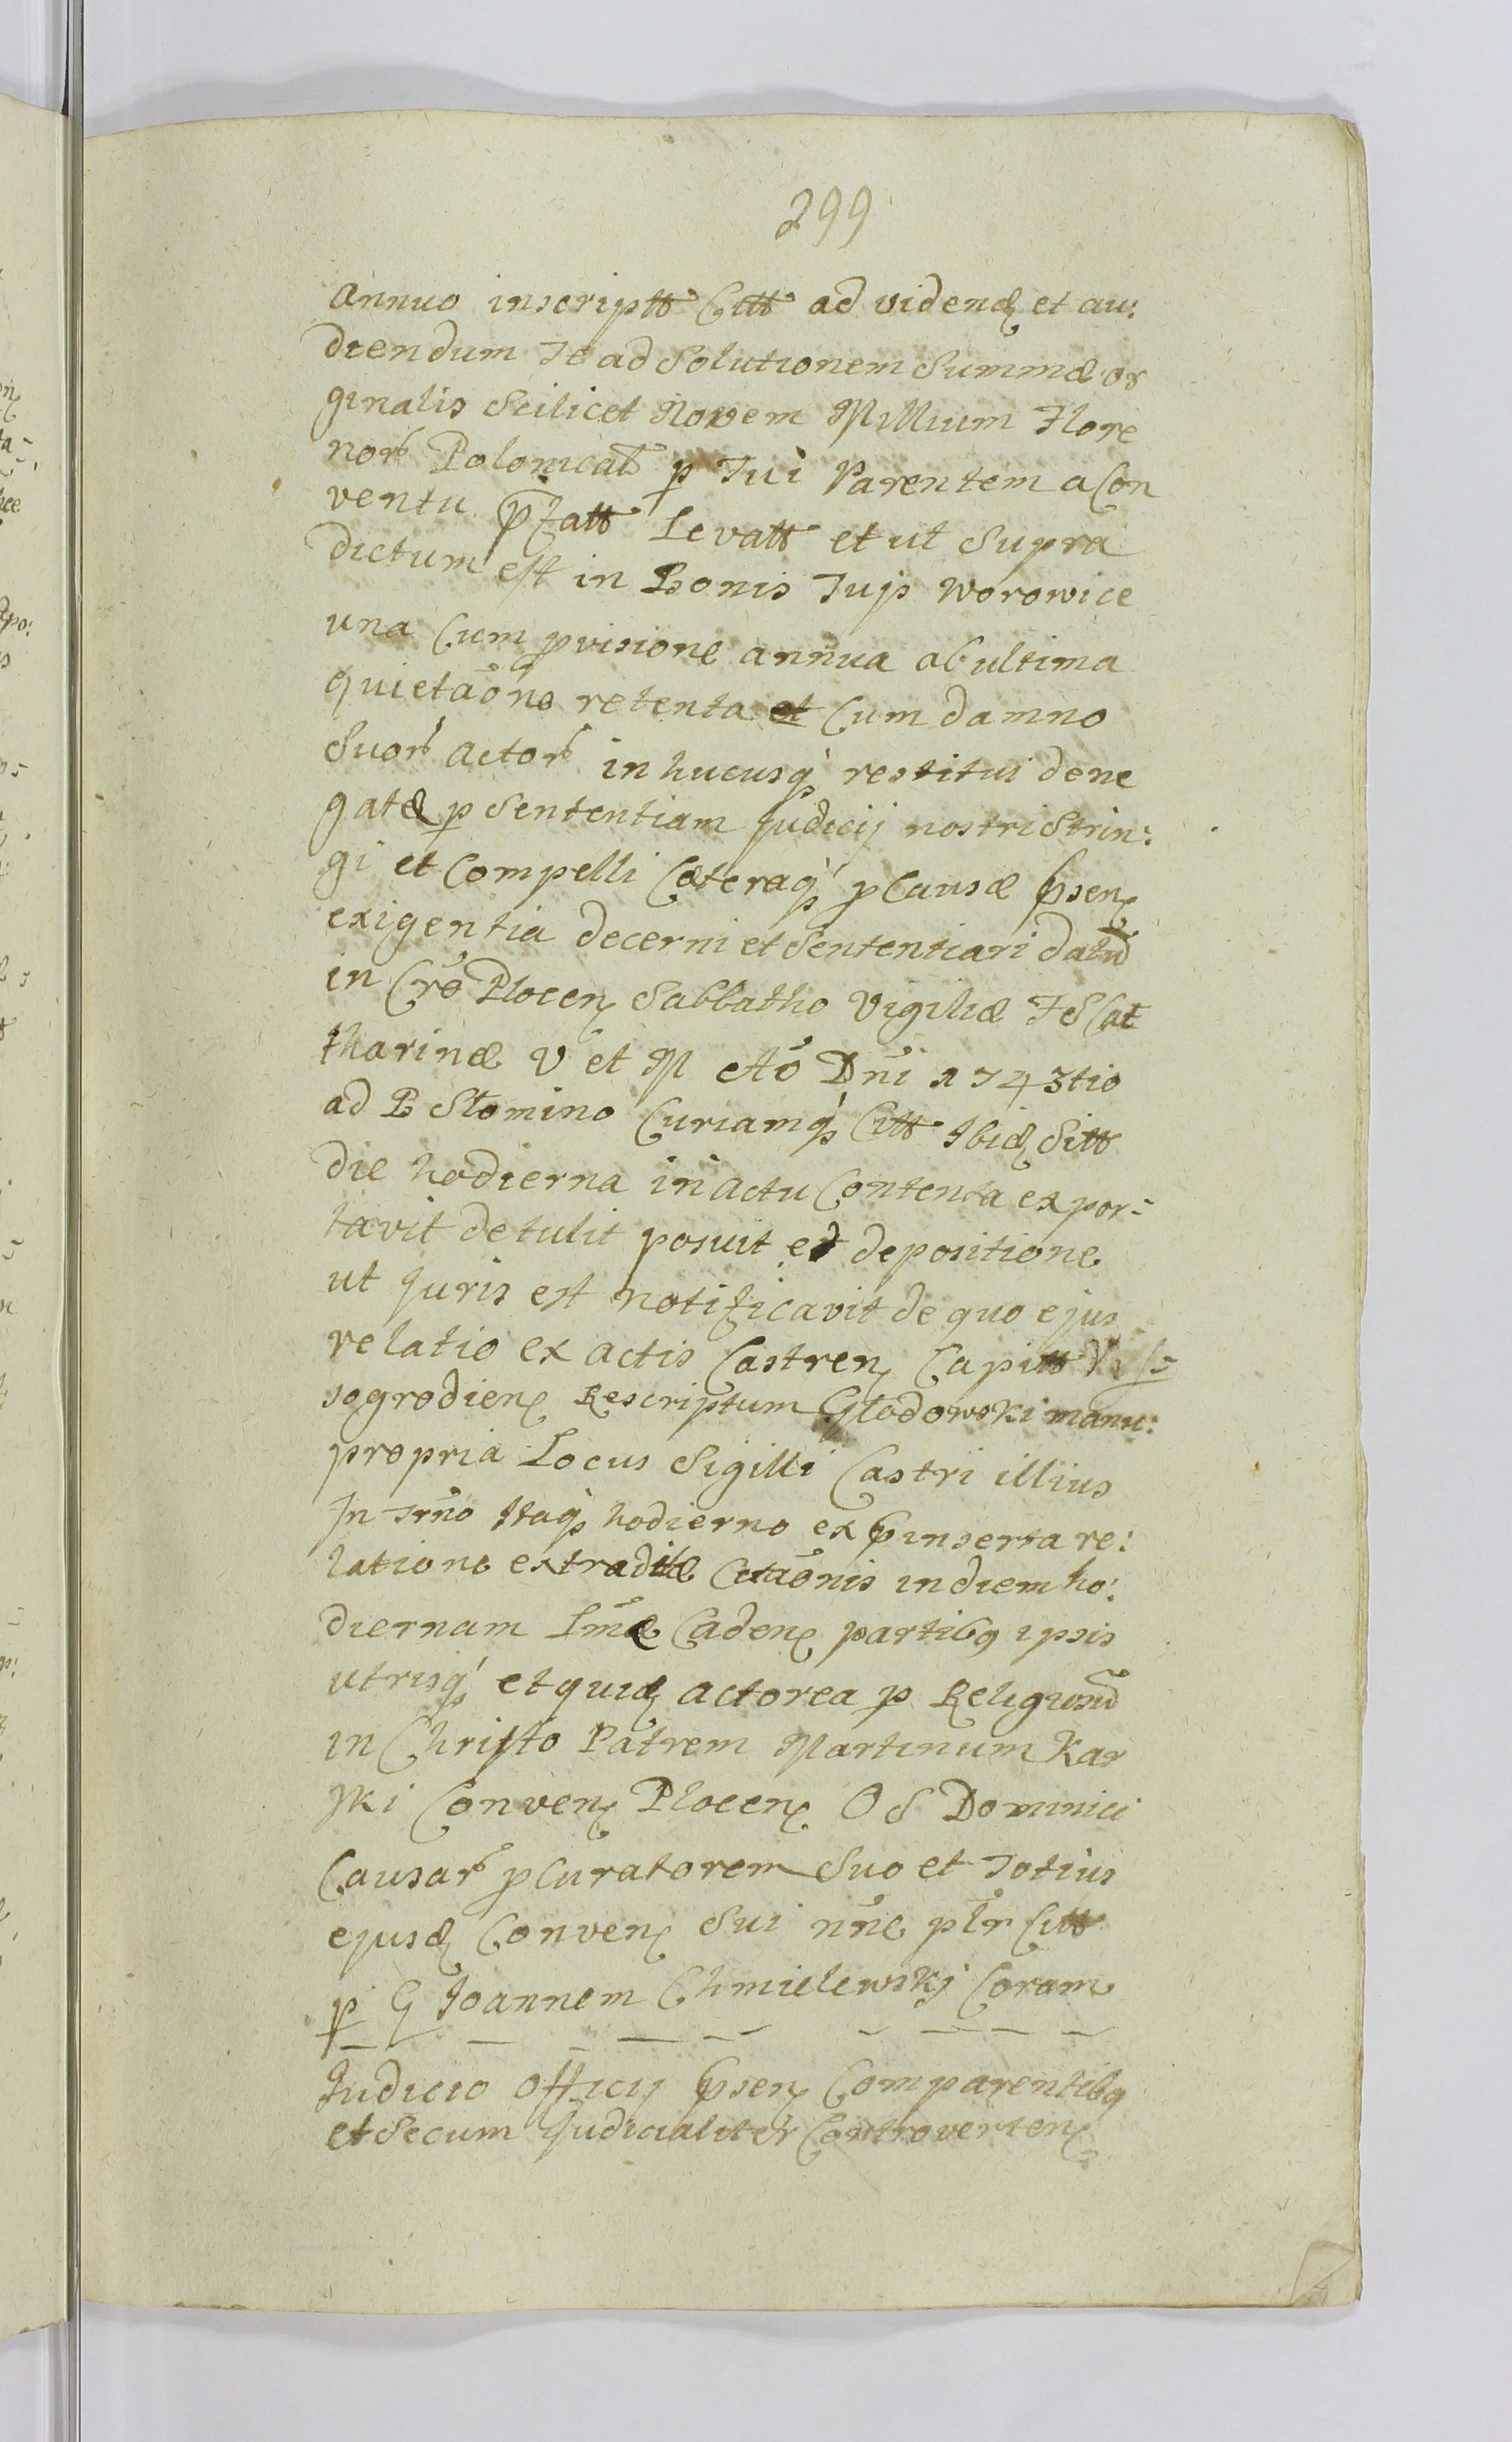 299
annuo inscriptt Citt ad videnđ et au:
diendum Te ad Solutionem Summæ or
ginalis Scilicet Novem Millium Flore
norb Polonicalb p Tui Parentem a Con
ventu pfatt Levatt et ut Supra
dictum est in Bonis Tujs Worowice
una Cum pvisione annua ab ultima
quietaõne retenta et Cum damno
Suorb Actorb in hucusq restitui dene
gatæ p Sententiam Judicij nostri Strin:
gi et Compelli Cæteraq p Causæ psen
exigentia decerni et Sententiari datũ
in Crõ Plocen Sabbatho Vigiliæ F S Cat
tharinæ V et M Aõ Dñi 1743tio
ad B Slomino Curiamq Citt Ibiđ Sitt
die hodierna in actu Contenta expor-
tavit detulit posuit et depositione
ut Juris est notificavit de quo ejus
relatio ex actis Castren Capitt Vis-
sogrodien Rescriptum Głodowski manu:
propria Locus Sigilli Castri illius
In Trño Itaq hodierno ex pinserta re:
latione extraditæ Citaõnis in diem ho:
diernam Lmæ Caden partibq ipsis
utrisq et quiđ actorea p Religiosũ
in Christo Patrem Martinum Kar
ski Conven Plocen O S Dominici
Causarb pCuratorem Suo et Totius
ejusđ Conven Sui nñe pltr Citt
p G Joannem Chmielewskj Coram
Judicio Officij psen Comparentibq
et Secum Judicialiter Controverten